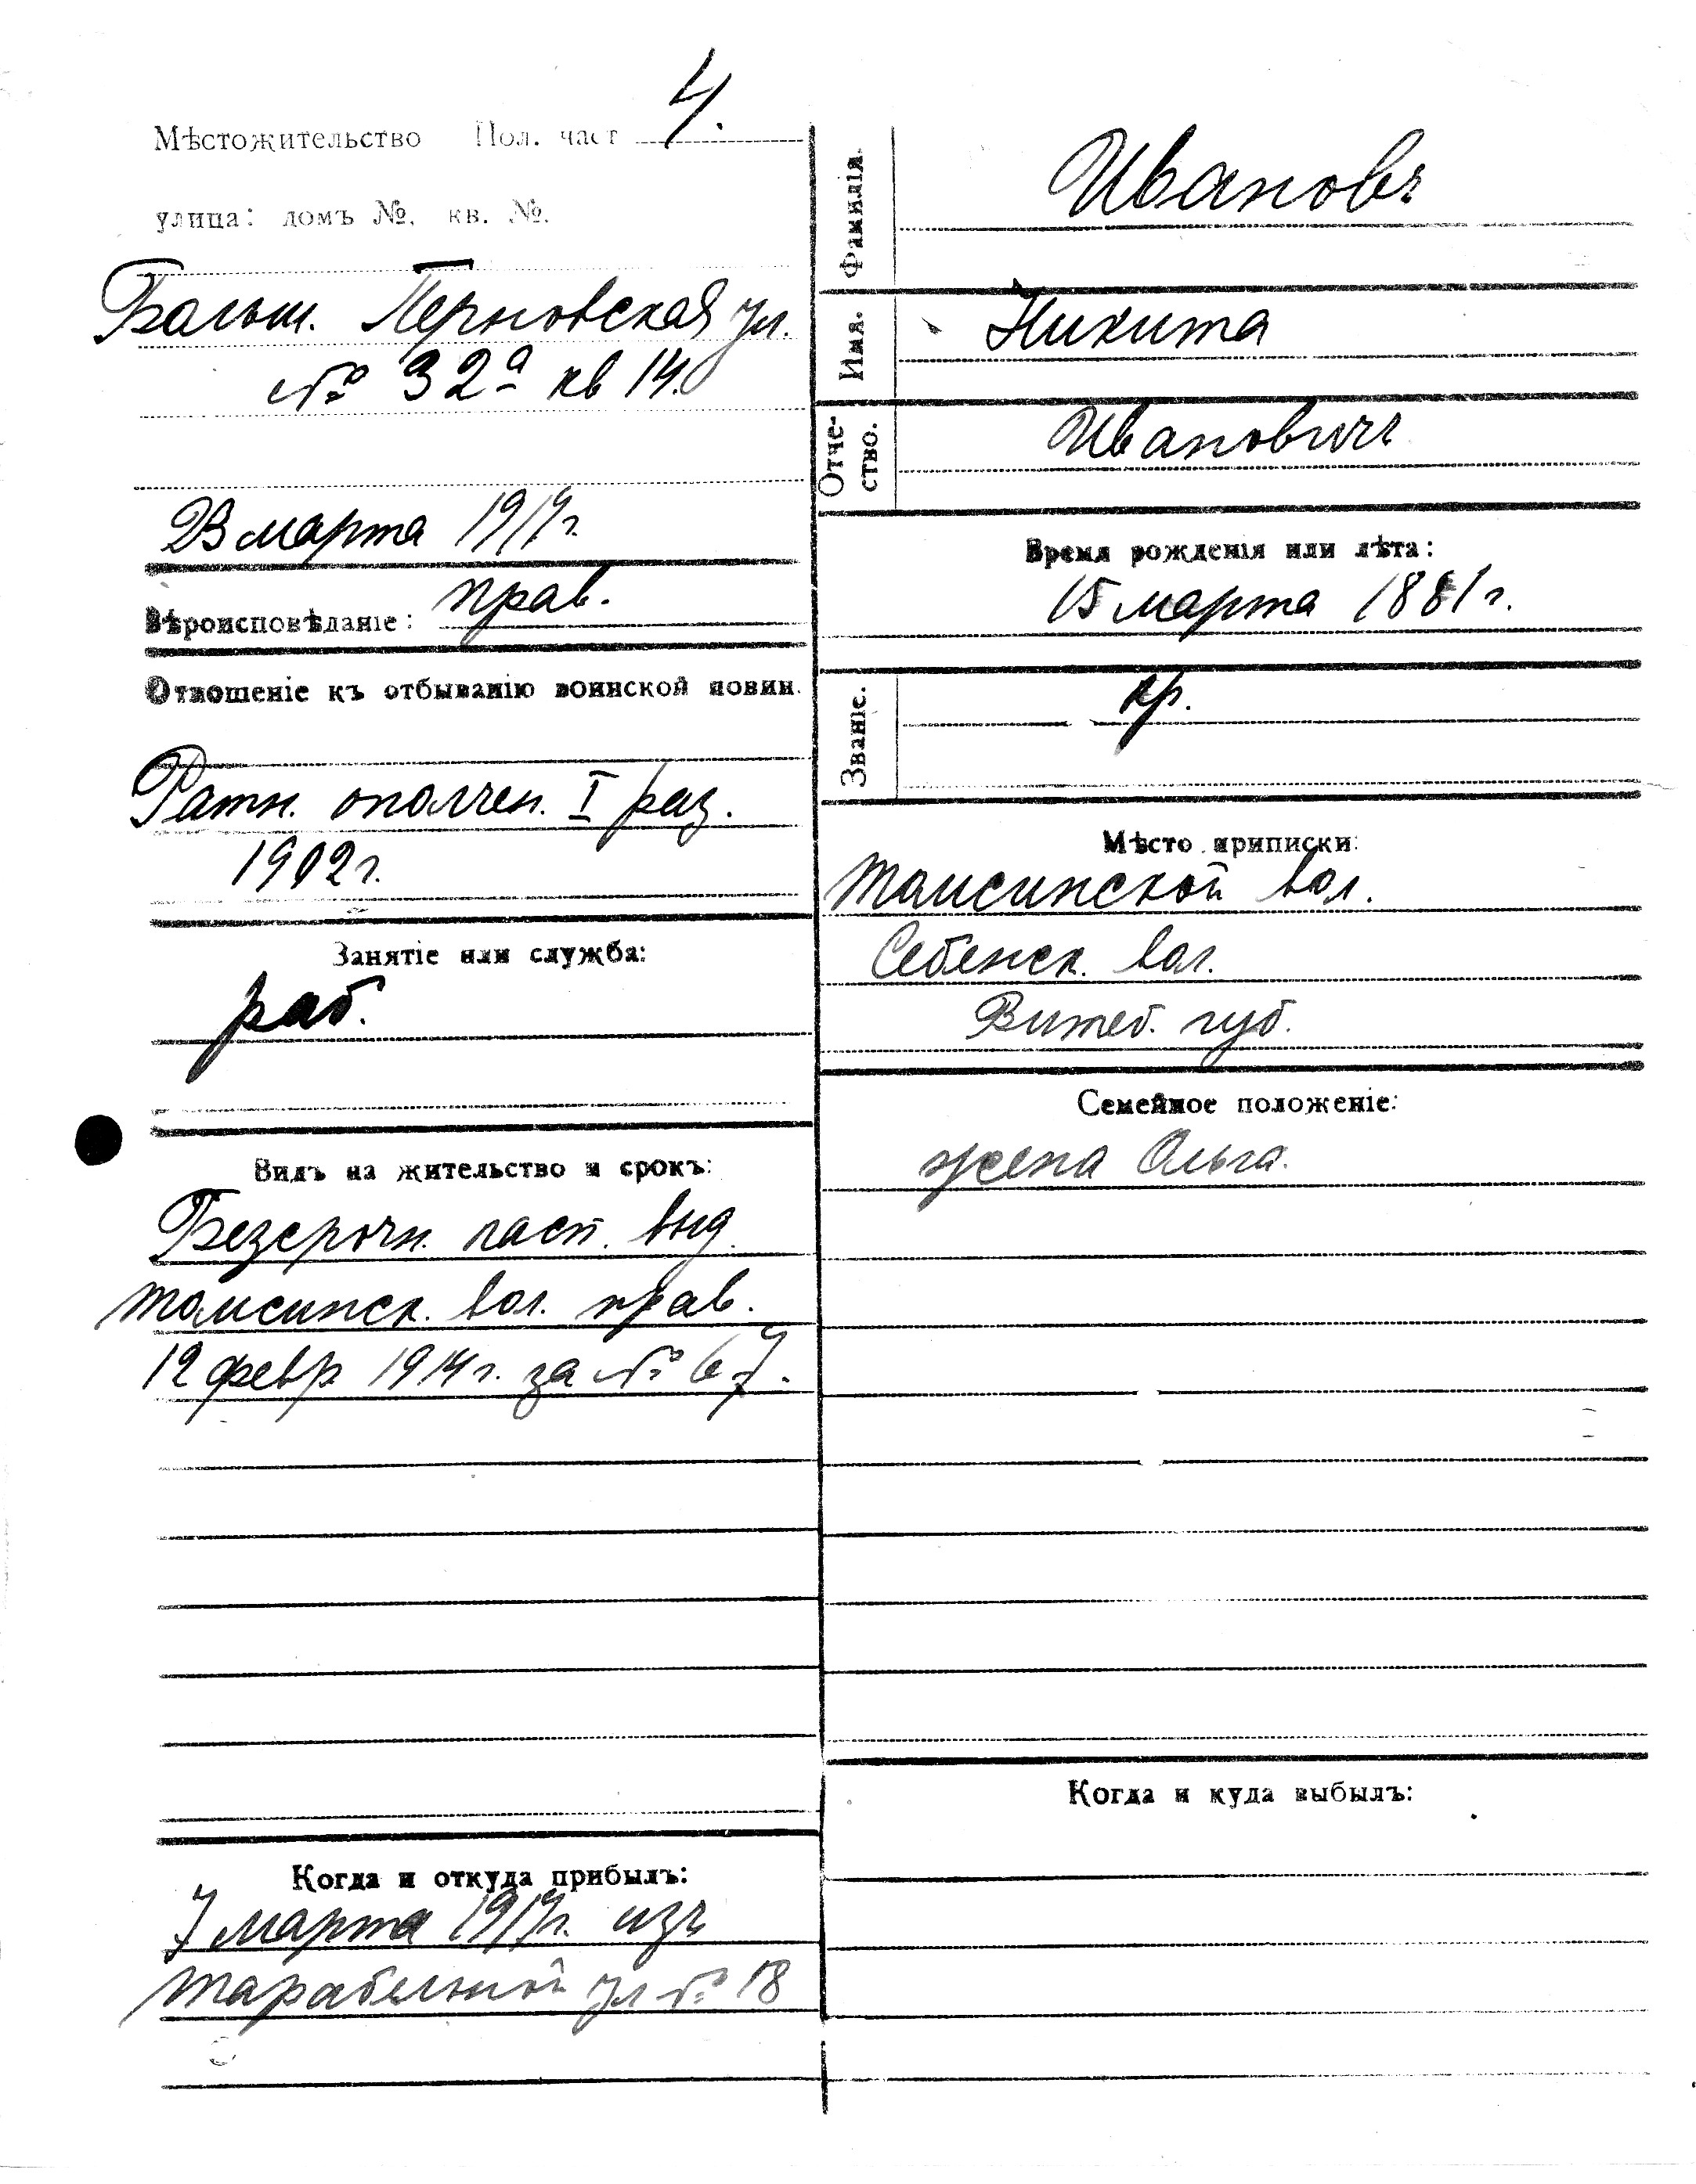 Мѣстожительство Пол. част 4.
улица: домъ №, кв. №.
Больш. Перновская ул.
№ 32а кв 14.
23 марта 1917г.
Вѣроисповѣданіе: прав.
Отношеніе къ отбыванію воинской повин.
Ратн. ополчен. I раз.
1902г.
Занятіе или служба:
раб.
Видъ на жительство и срокъ:
Безсрочн. пасп. выд.
Томсинск. вол. прав.
12 февр 1914г. за № 67.
Когда и откуда прибылъ:
7 марта 1917г. изъ
Карабельной ул № 18
Фамилія. Ивановъ
Имя. Никита
Отче-
ство. Ивановичъ
Время рожденія или лѣта:
15 марта 1881г.
Званіе. кр.
Мѣсто приписки:
Томсинской вол.
Себежск. вол.
Витеб. губ.
Семейное положеніе:
жена Ольга.
Когда и куда выбылъ: